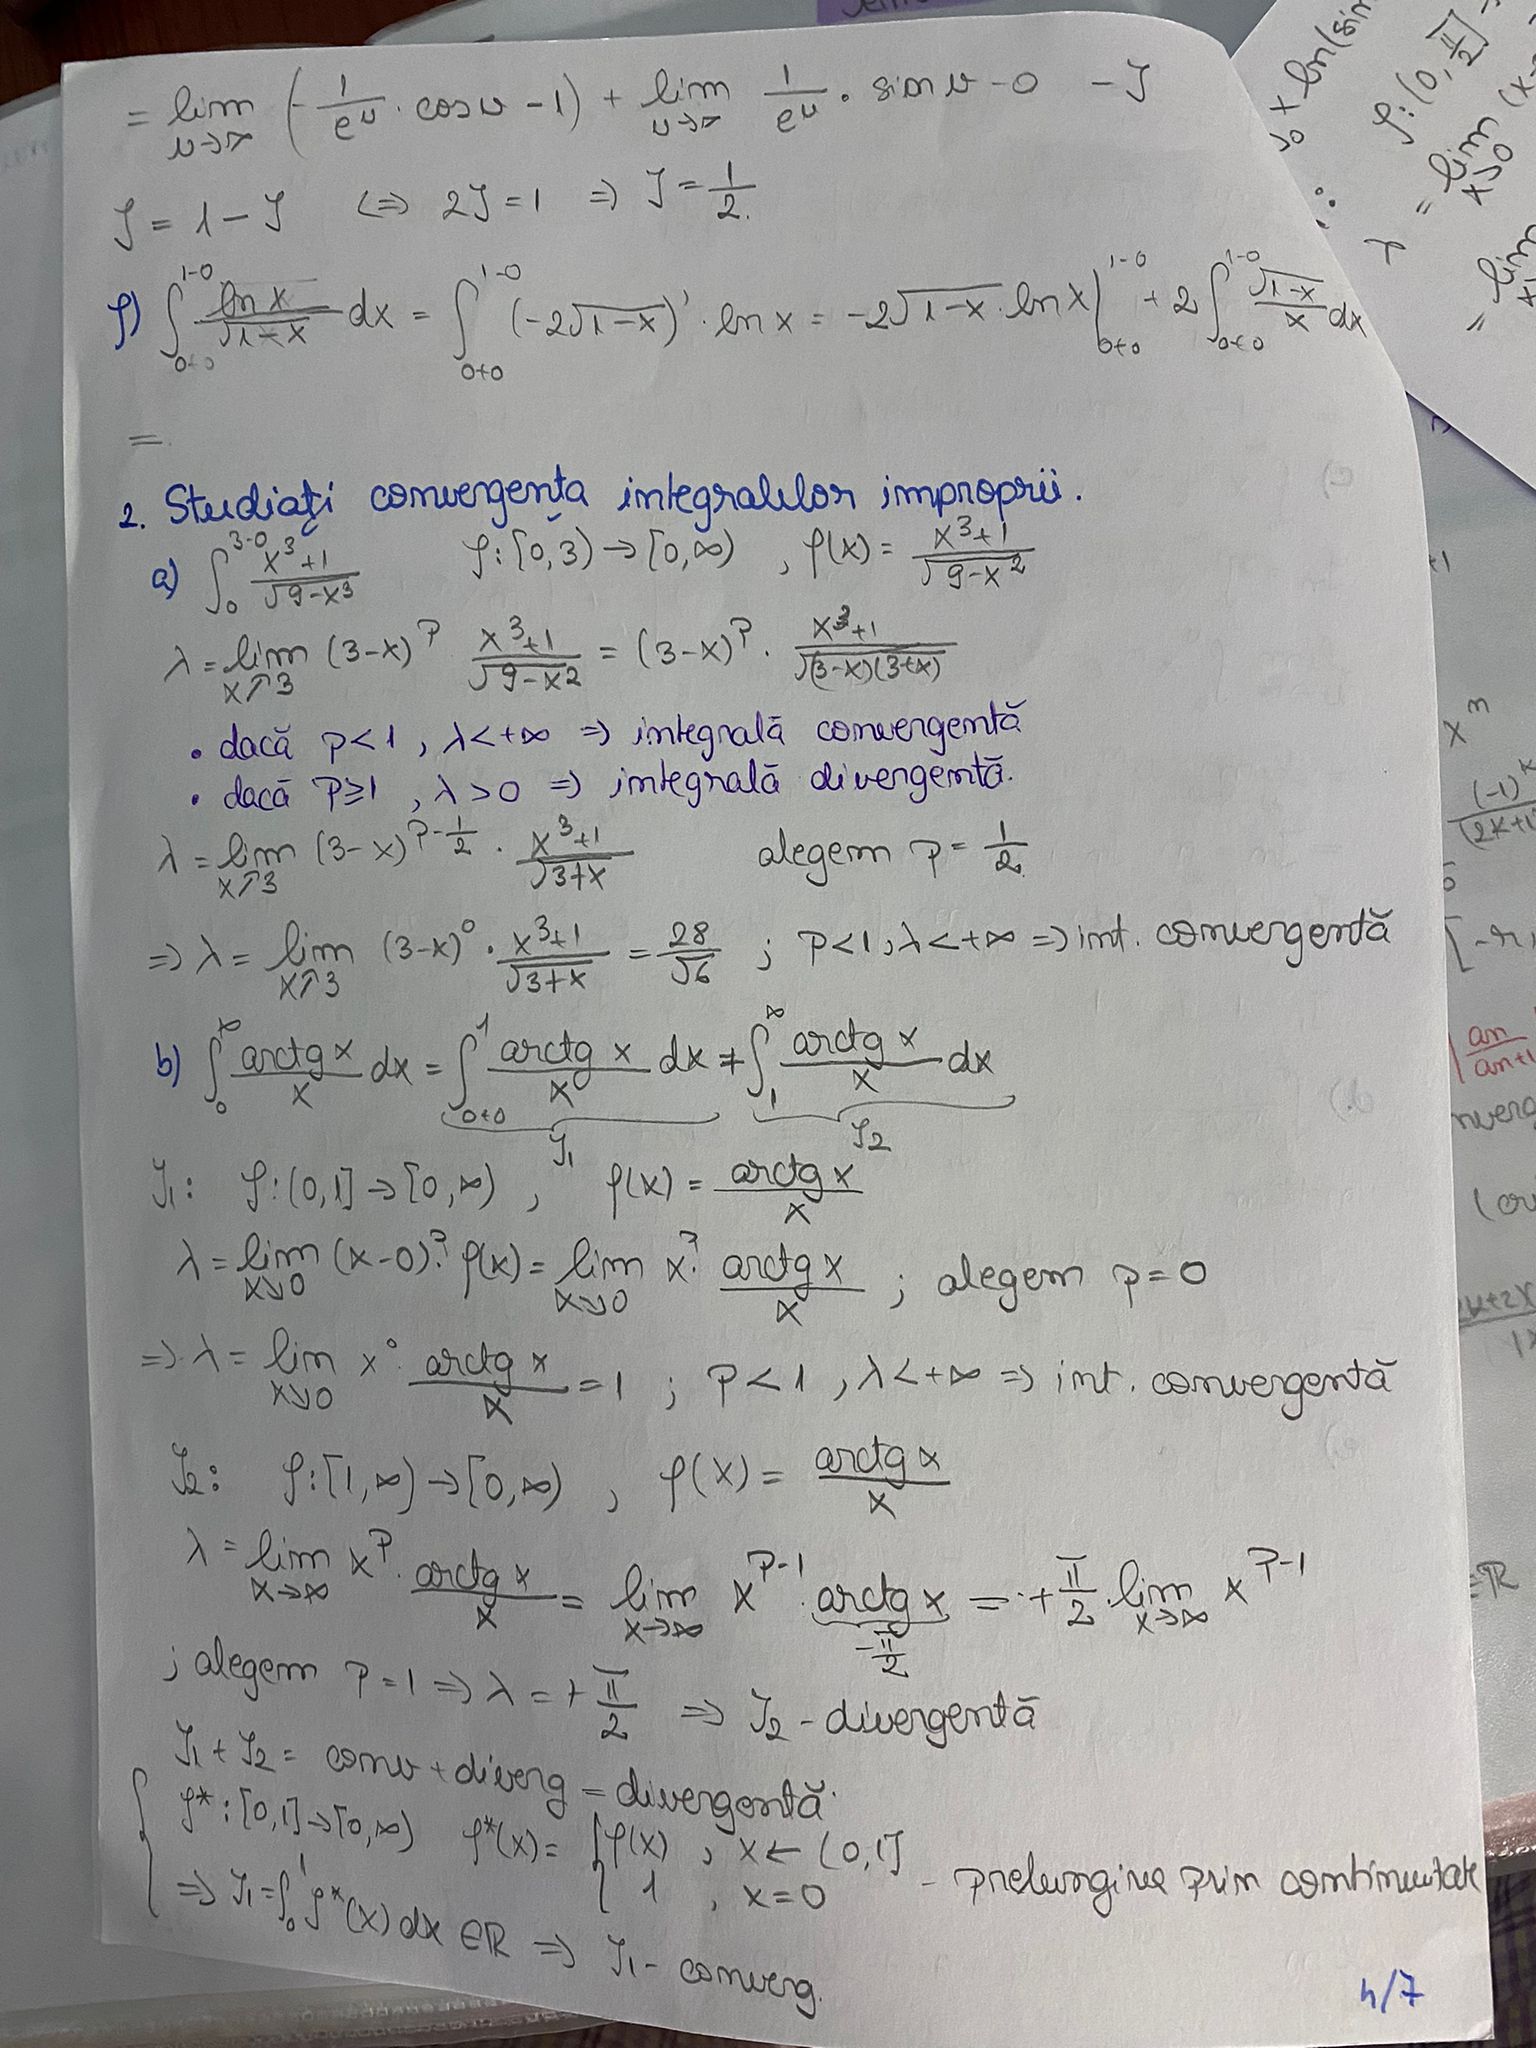 = lim_{u→∞} (-1/e^u · cos u - 1) + lim_{u→∞} 1/e^u · sin u - 0 - J
J = 1 - J ⇔ 2J = 1 ⇒ J = 1/2.
f) ∫_{0+0}^{1-0} ln x/√(1-x) dx = ∫_{0+0}^{1-0} (-2√(1-x))' · ln x = -2√(1-x) · ln x |_{0+0}^{1-0} + 2 ∫_{0+0}^{1-0} √(1-x)/x dx
=
2. Studiați convergența integralelor improprii.
a) ∫_0^{3-0} (x^3+1)/√(9-x^3)   f: [0,3) → [0,∞) , f(x) = (x^3+1)/√(9-x^2)
λ = lim_{x↗3} (3-x)^p · (x^3+1)/√(9-x^2) = (3-x)^p · (x^3+1)/√((3-x)(3+x))
• dacă p<1, λ<+∞ ⇒ integrală convergentă
• dacă p≥1, λ>0 ⇒ integrală divergentă.
λ = lim_{x↗3} (3-x)^{p-1/2} · (x^3+1)/√(3+x)   alegem p = 1/2
⇒ λ = lim_{x↗3} (3-x)^0 · (x^3+1)/√(3+x) = 28/√6 ; p<1, λ<+∞ ⇒ int. convergentă
b) ∫_0^∞ arctg x/x dx = ∫_{0+0}^1 arctg x/x dx + ∫_1^∞ arctg x/x dx
J1 J2
J1: f: (0,1] → [0,∞) , f(x) = arctg x/x
λ = lim_{x↘0} (x-0)^p · f(x) = lim_{x↘0} x^p · arctg x/x ; alegem p = 0
⇒ λ = lim_{x↘0} x^0 · arctg x/x = 1 ; p<1, λ<+∞ ⇒ int. convergentă
J2: f: [1,∞) → [0,∞) , f(x) = arctg x/x
λ = lim_{x→∞} x^p · arctg x/x = lim_{x→∞} x^{p-1} · arctg x = + π/2 · lim_{x→∞} x^{p-1}
π/2
; alegem p = 1 ⇒ λ = + π/2 ⇒ J2 - divergentă
J1 + J2 = conv + diverg = divergentă.
f*: [0,1] → [0,∞) f*(x) = { f(x) , x ∈ (0,1]
1 , x = 0 - prelungire prin continuitate
⇒ J1 = ∫_0^1 f*(x) dx ∈ ℝ ⇒ J1 - converg.
4/7